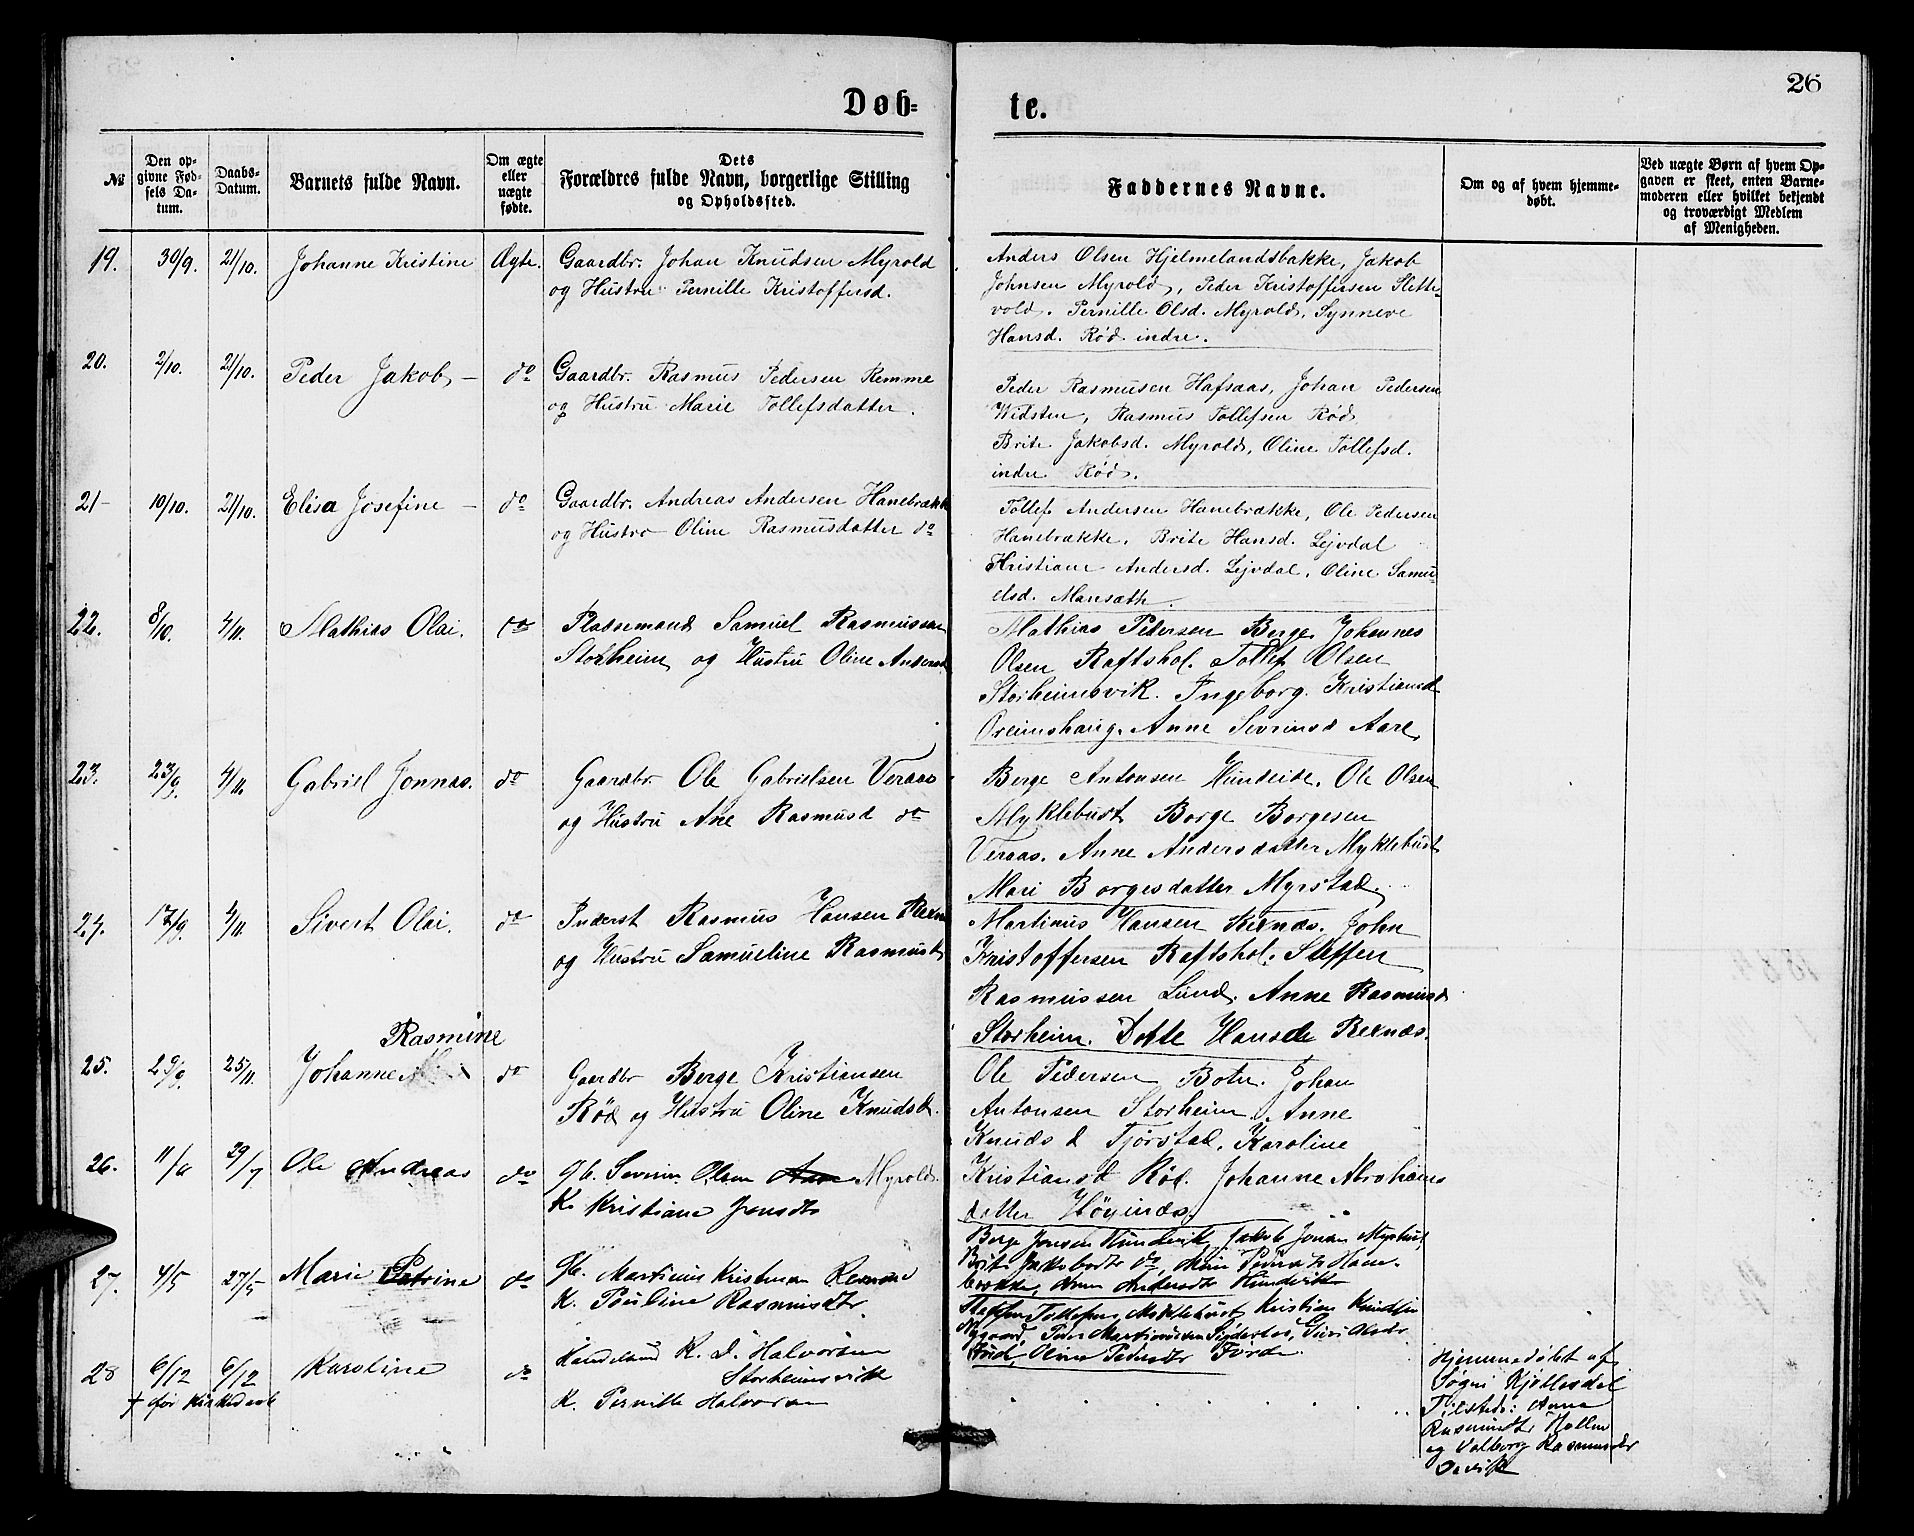 26
Døb- te.
№
Den opgivne Fødsels Datum.
Daabs-Datum.
Barnets fulde Navn.
Om ægte eller uægte fødte.
Dets Forældres fulde Navn, borgerlige Stilling og Opholdssted.
Faddernes Navne.
Om og af hvem hjemmedøbt.
Ved uægte Børn af hvem Opgaven er skeet, enten Barnemoderen eller hvilket bekjendt og troværdigt Medlem af Menigheden.
19. 30/9. 21/10. Johanne Kristine Ægte. Gaardbr. Johan Knudsen Myrold
og Hustru Pernille Kristoffersd.
Anders Olsen Hjelmelandsbakke, Jakob
Johnsen Myrold, Peder Kristoffersen Slette-
vold. Pernille Olsd. Myrold, Synneve
Hansd. Rød indre.
20. 2/10. 21/10. Peder Jakob – do Gaardbr. Rasmus Pedersen Remme
og Hustru Marie Tollefsdatter.
Peder Rasmusen Hafsaas, Johan Pedersen
Widsten, Rasmus Tollefsen Rød,
Brite Jakobsd. Myrold, Oline Tollefsd.
indre Rød.
21– 10/10. 21/10. Elisa Josefine – do Gaardbr. Andreas Andersen Hanebrække
og Hustro Oline Rasmusdatter do
Tollef Andersen Hanebrække, Ole Pedersen
Hanebrække, Brite Hansd. Lejvdal
Kristiane Andersd. Lejvdal, Oline Samu-
elsd. Mansæth.
22. 8/10. 4/11. Mathias Olai. do Pladsemand Samuel Rasmussen
Storheim og Hustru Oline Andersd
Mathias Pedersen Berge, Johannes
Olsen Raftshol. Tollef Olsen
Storheimsvik. Ingeborg Kristiansd
Oreimshaug. Anne Sivrinsd Aare,
23. 23/9. 4/11. Gabriel Jonnas. do Gaardbr. Ole Gabrielsen Veraas
og Hustru Ane Rasmusd do
Berge Antonsen Hundeide. Ole Olsen
Myklebust Borge Borgesen
Veraas. Anne Andersdatter Myklebust
Mari Borgesdatter Myrstad.
24. 17/9. 4/11. Sivert Olai. do Inderst Rasmus Hansen
og Hustru Samueline Rasmusd
Martinus Hansen Rexnæs. John
Kristoffersen Raftshol. Steffen
Rasmussen Lund. Anne Rasmusd
Storheim. Dotte Hansd Rexnæs.
Rasmine
25. 29/9. 25/11. Johanne do Gaardbr Berge Kristiansen
Rød og Hustru Oline Knudsd.
Ole Pedersen Botn. Johan
Antonsen Storheim. Anne
Knudsd Tjørstad, Karoline
Kristiansd Rød. Johanne Abrahams
datter
26. 11/6 29/7 Ole Andreas do gb. Severin Olsen Myrold.
K. Kristiane Jensdtr
Berge Jonsen Hundvik, Jakob
27. 4/5 27/5 Marie Petrine do gb. Martinus Kristensen
K. Pauline Rasmusdtr.
Steffen Tollefsen Myklebust, Kristian Knudsen
Oline Pedersdtr Förde.
28 6/12 6/12 Karoline do K. D. Halvorsen
Storheimsvik
K. Pernille Halvorsen
† før Kirkedaab
Hjemmedøbt af
Søgni Kjøllesdal
Tilstede: Anna
Rasmusdtr
og Valborg Rasmusdtr